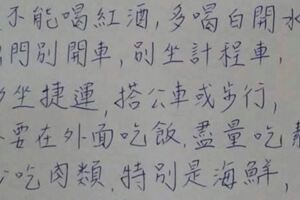 不能喝紅酒,多喝白開水
門別開車,別坐計程車,
坐捷運,搭公車或步行,
要在外面吃飯,盡量吃
吃肉類,特別是海鮮,